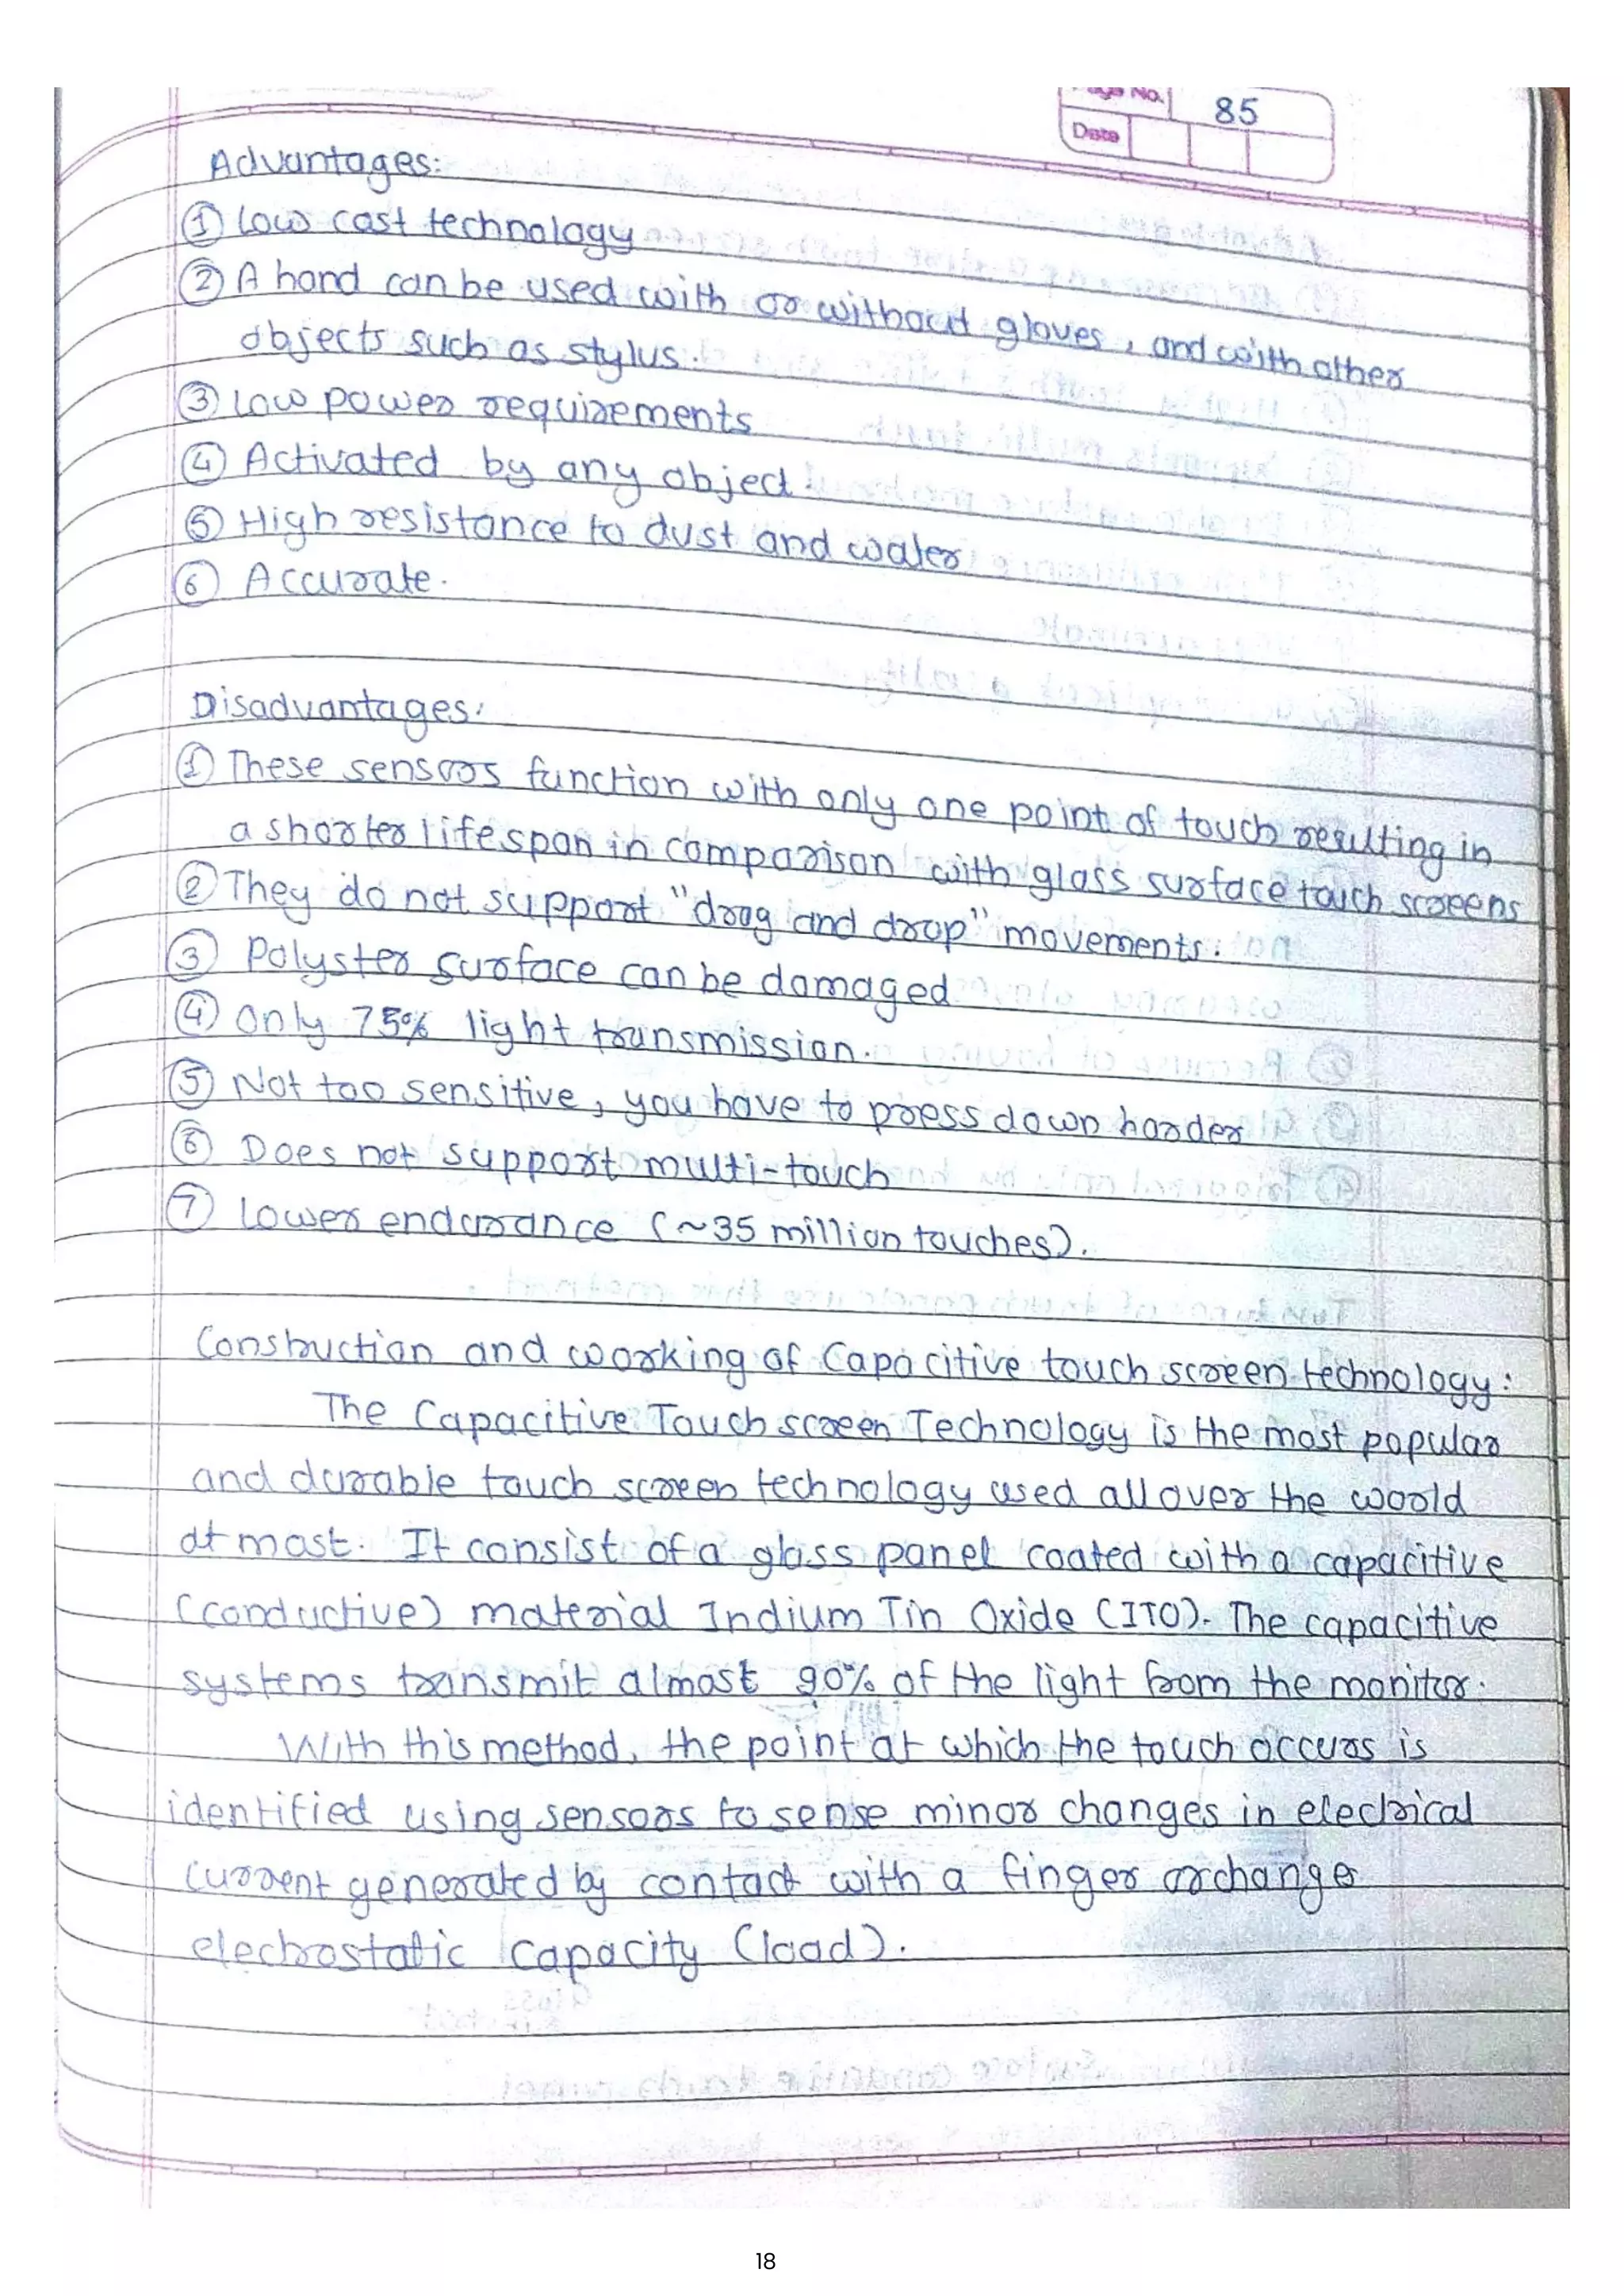 Page No. 85
Date
Advantages:
① Low cost technology
② A hand can be used with or without gloves, and with other
objects such as stylus.
③ Low power requirements
④ Activated by any object
⑤ High resistance to dust and water
⑥ Accurate.
Disadvantages:
① These sensors function with only one point of touch resulting in
a shorter lifespan in comparison with glass surface touch screens
② They do not support "drag and drop" movements.
③ Polyster surface can be damaged
④ Only 75% light transmission.
⑤ Not too sensitive, you have to press down harder
⑥ Does not support multi-touch
⑦ Lower endurance (~35 million touches).
Construction and working of Capacitive touch screen technology:
The Capacitive Touch screen Technology is the most popular
and durable touch screen technology used all over the world
at most. It consist of a glass panel coated with a capacitive
(conductive) material Indium Tin Oxide (ITO). The capacitive
systems transmit almost 90% of the light from the monitor.
With this method, the point at which the touch occurs is
identified using sensors to sense minor changes in electrical
current generated by contact with a finger or change
electrostatic capacity (load).
18